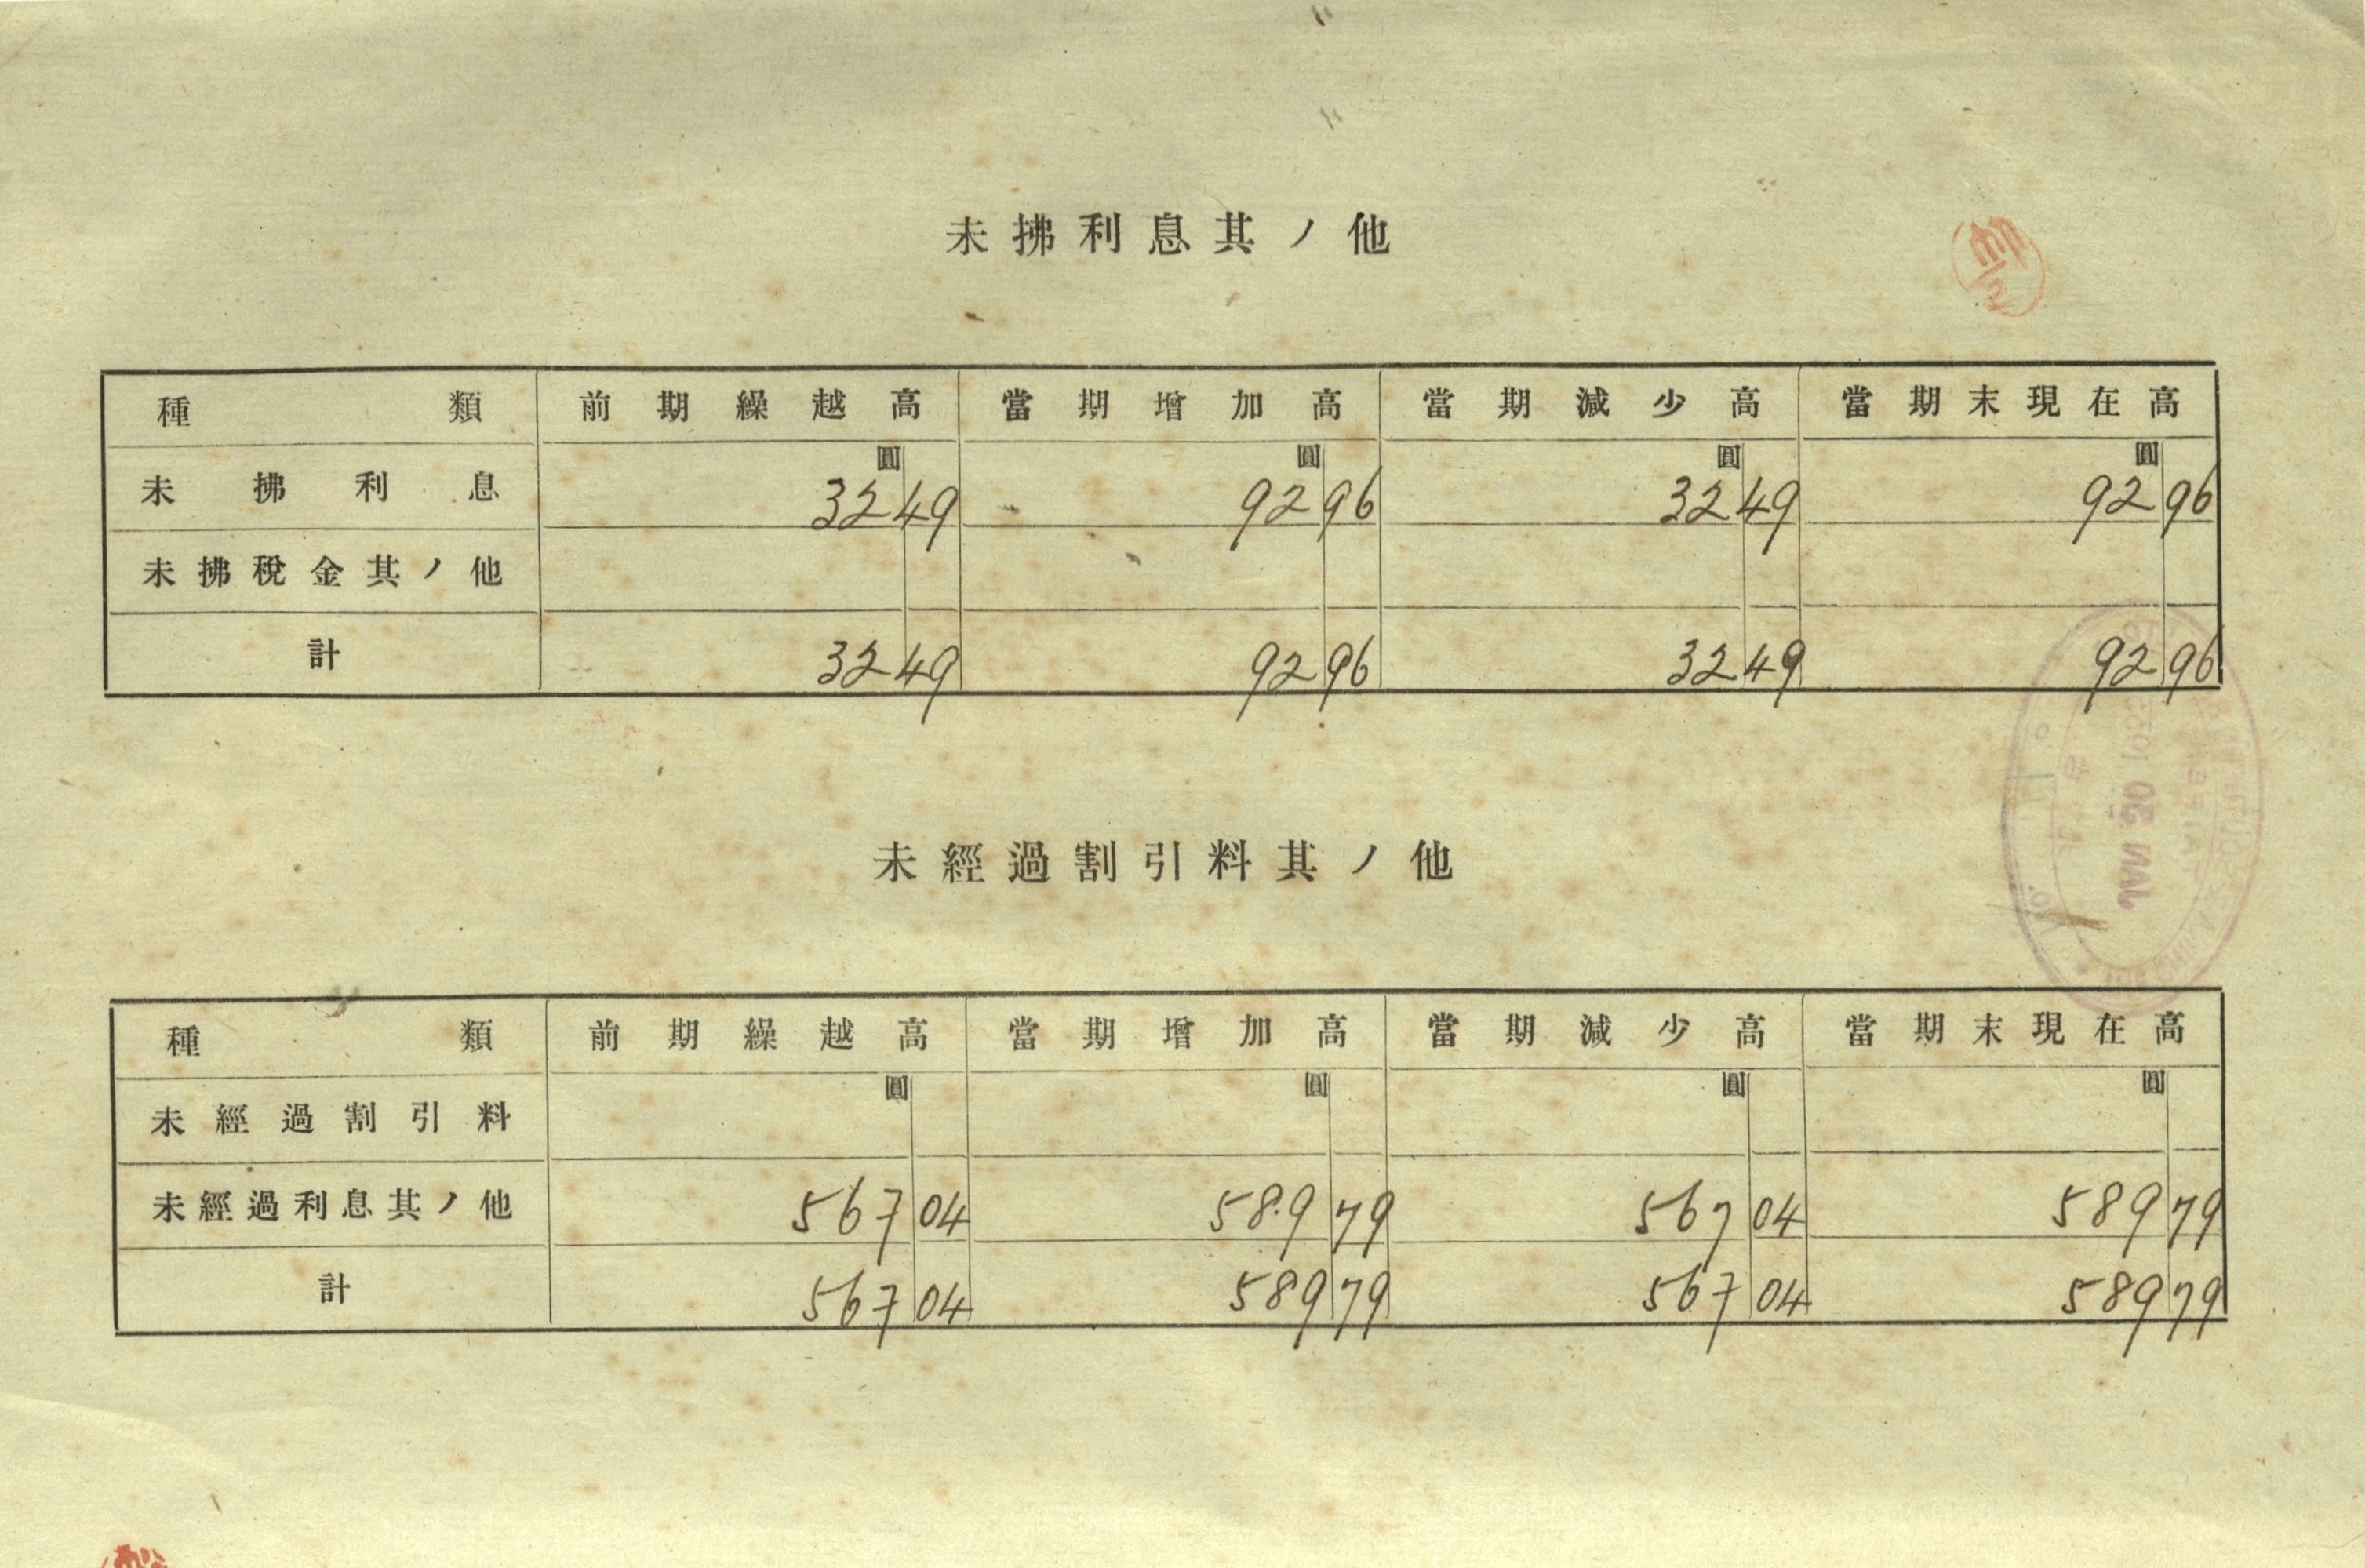 未拂利息其ノ他
種類 前期繰越高 當期增加高 當期減少高 當期末現在高
圓 圓 圓 圓
未拂利息 32 49 92 96 32 49 92 96
未拂稅金其ノ他
計 32 49 92 96 32 49 92 96
未經過割引料其ノ他
種類 前期繰越高 當期增加高 當期減少高 當期末現在高
圓 圓 圓 圓
未經過割引料
未經過利息其ノ他 567 04 589 79 567 04 589 79
計 567 04 589 79 567 04 589 79